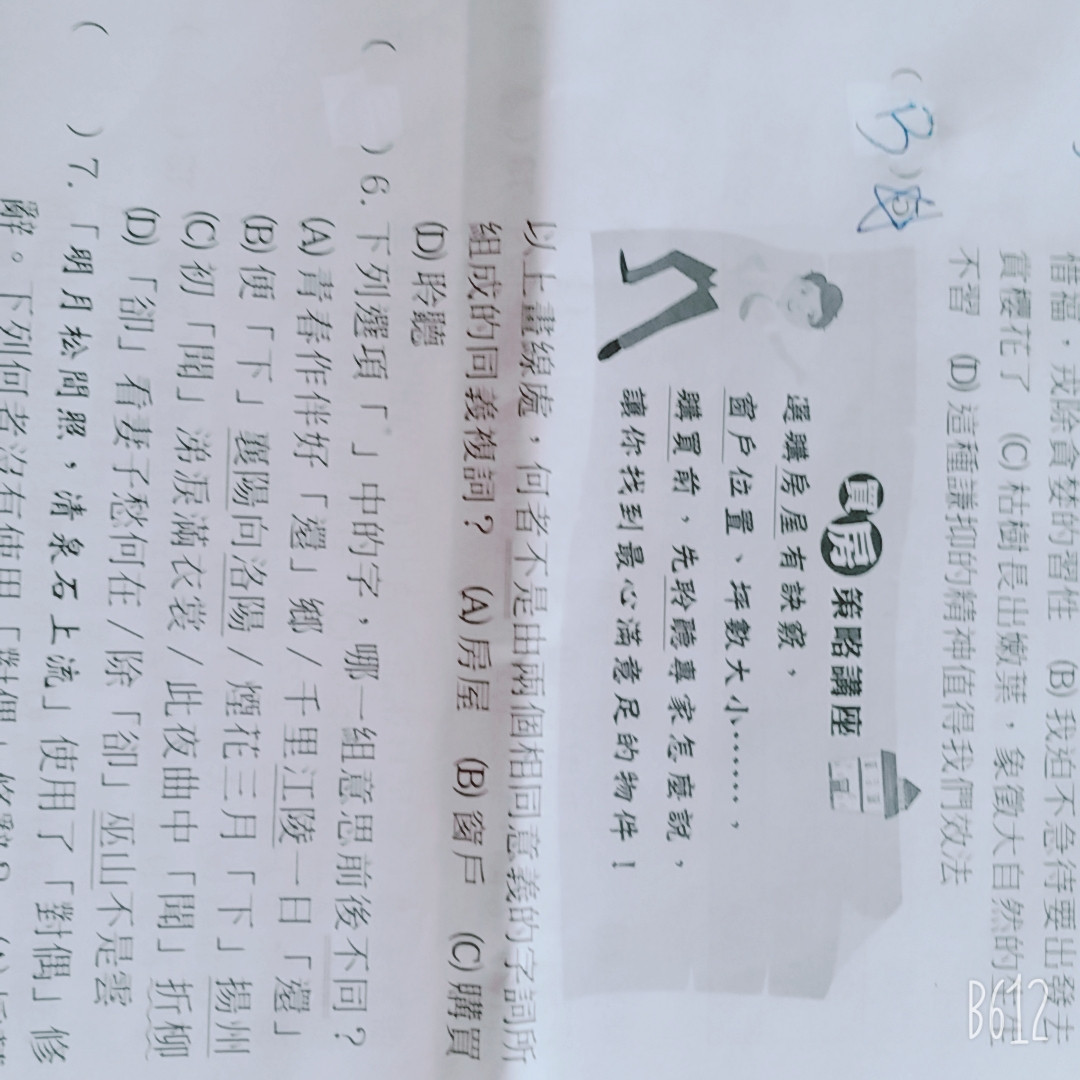 惜福，戒除貪婪的習性 (B)我迫不急待要出發去
賞櫻花了 (C)枯樹長出嫩葉，象徵大自然的生生
不習 (D)這種謙抑的精神值得我們效法
( B )5.
買房策略講座
選購房屋有訣竅，
窗戶位置、坪數大小……，
購買前，先聆聽專家怎麼說，
讓你找到最心滿意足的物件！
以上畫線處，何者不是由兩個相同意義的字詞所
組成的同義複詞？ (A)房屋 (B)窗戶 (C)購買
(D)聆聽
( )6. 下列選項「 」中的字，哪一組意思前後不同？
(A)青春作伴好「還」鄉／千里江陵一日「還」
(B)便「下」襄陽向洛陽／煙花三月「下」揚州
(C)初「聞」涕淚滿衣裳／此夜曲中「聞」折柳
(D)「卻」看妻子愁何在／除「卻」巫山不是雲
( )7. 「明月松間照，清泉石上流」使用了「對偶」修
辭。下列何者沒有使用「對偶」修辭？
B612